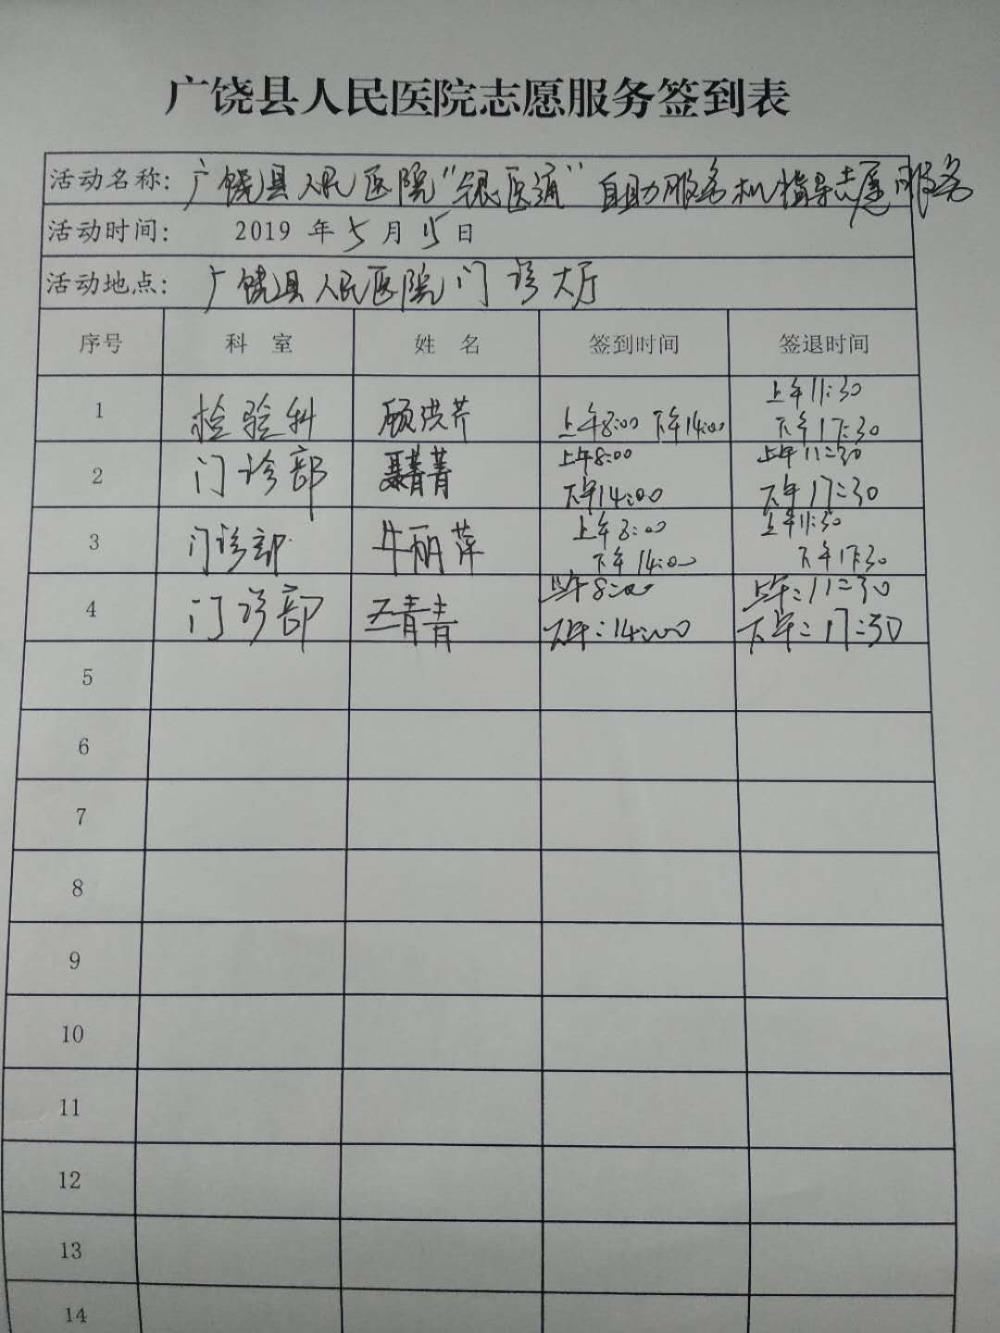 广饶县人民医院志愿服务签到表
活动名称：广饶县人民医院“银医通”自助服务机指导志愿服务
活动时间： 2019 年 5 月 15 日
活动地点：广饶县人民医院门诊大厅
序号 科 室 姓 名 签到时间 签退时间
1 检验科 顾洪芹 上午8:00 下午14:00 上午11:30 下午17:30
2 门诊部 聂菁菁 上午8:00 下午14:00 上午11:30 下午17:30
3 门诊部 牛丽萍 上午8:00 下午14:00 上午11:30 下午17:30
4 门诊部 王青青 上午8:00 下午:14:00 上午:11:30 下午:17:30
5
6
7
8
9
10
11
12
13
14